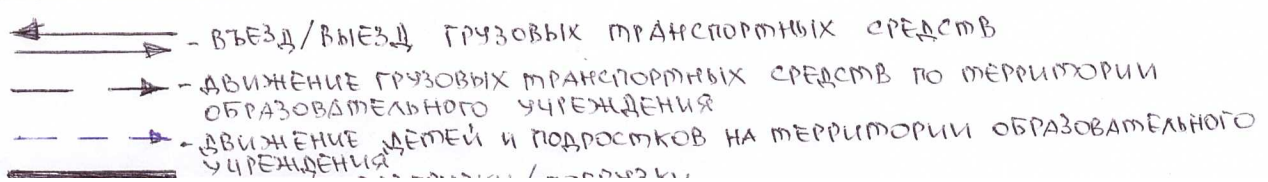 - ВЪЕЗД/ВЫЕЗД ГРУЗОВЫХ ТРАНСПОРТНЫХ СРЕДСТВ
- ДВИЖЕНИЕ ГРУЗОВЫХ ТРАНСПОРТНЫХ СРЕДСТВ ПО ТЕРРИТОРИИ
ОБРАЗОВАТЕЛЬНОГО УЧРЕЖДЕНИЯ
- ДВИЖЕНИЕ ДЕТЕЙ И ПОДРОСТКОВ НА ТЕРРИТОРИИ ОБРАЗОВАТЕЛЬНОГО
УЧРЕЖДЕНИЯ